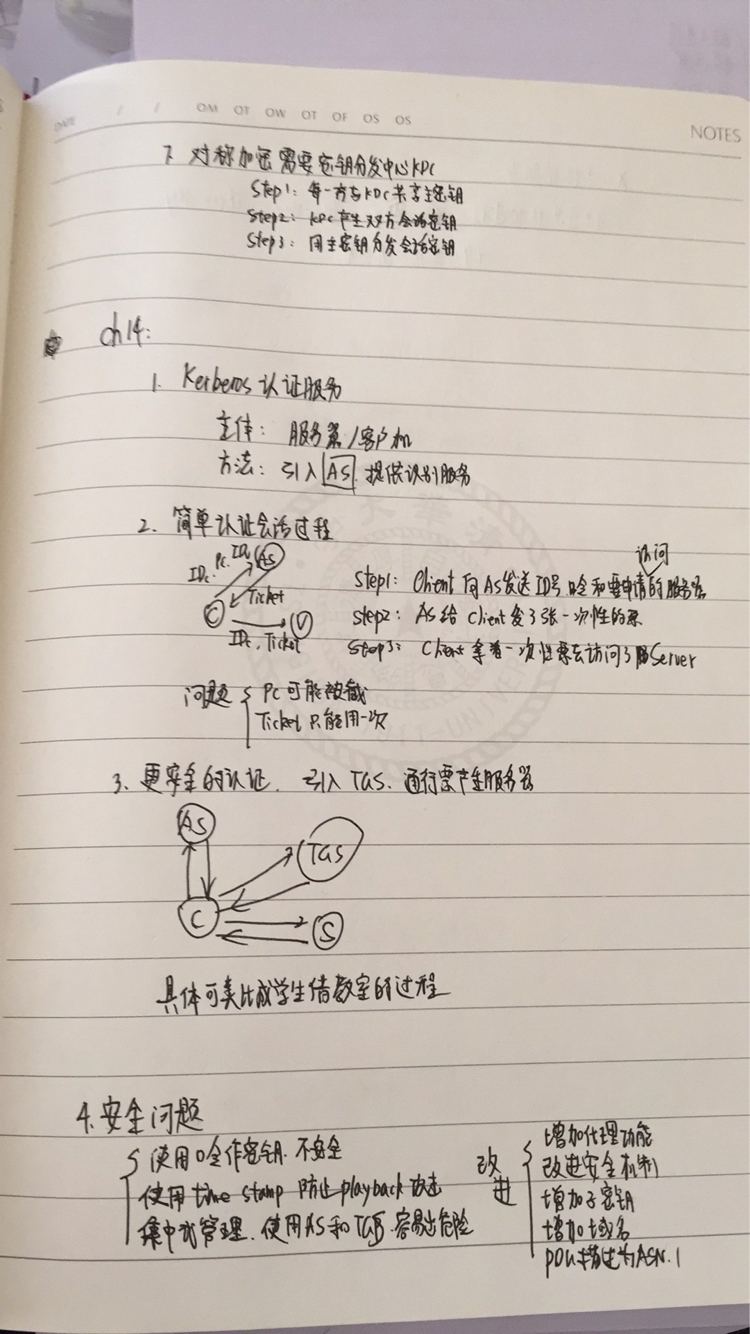 DATE / / OM OT OW OT OF OS OS
NOTES
7. 对称加密需要密钥分发中心KDC
Step1: 每一方与KDC共享主密钥
Step2: KDC产生双方会话密钥
Step3: 用主密钥分发会话密钥
ch14:
1. Kerberos认证服务
主体: 服务器/客户机
方法: 引入AS 提供识别服务
2. 简单认证会话过程
IDc. Pc. IDv
AS
Ticket
C
V
IDc, Ticket
访问
Step1: Client向AS发送ID号 哈和要申请的服务器
Step2: AS给Client发了张一次性的票
Step3: Client拿着一次性票去访问了Server
问题
Pc可能被截
Ticket 只能用一次
3. 更安全的认证. 引入TGS. 通行票产生服务器
AS
TGS
C
S
具体可类比成学生借教室的过程
4. 安全问题
使用口令作密钥. 不安全
使用time stamp 防止playback 攻击
集中式管理. 使用AS和TGS. 容易出危险
改进
增加代理功能
改进安全机制
增加子密钥
增加域名
PDU描述为ASN.1